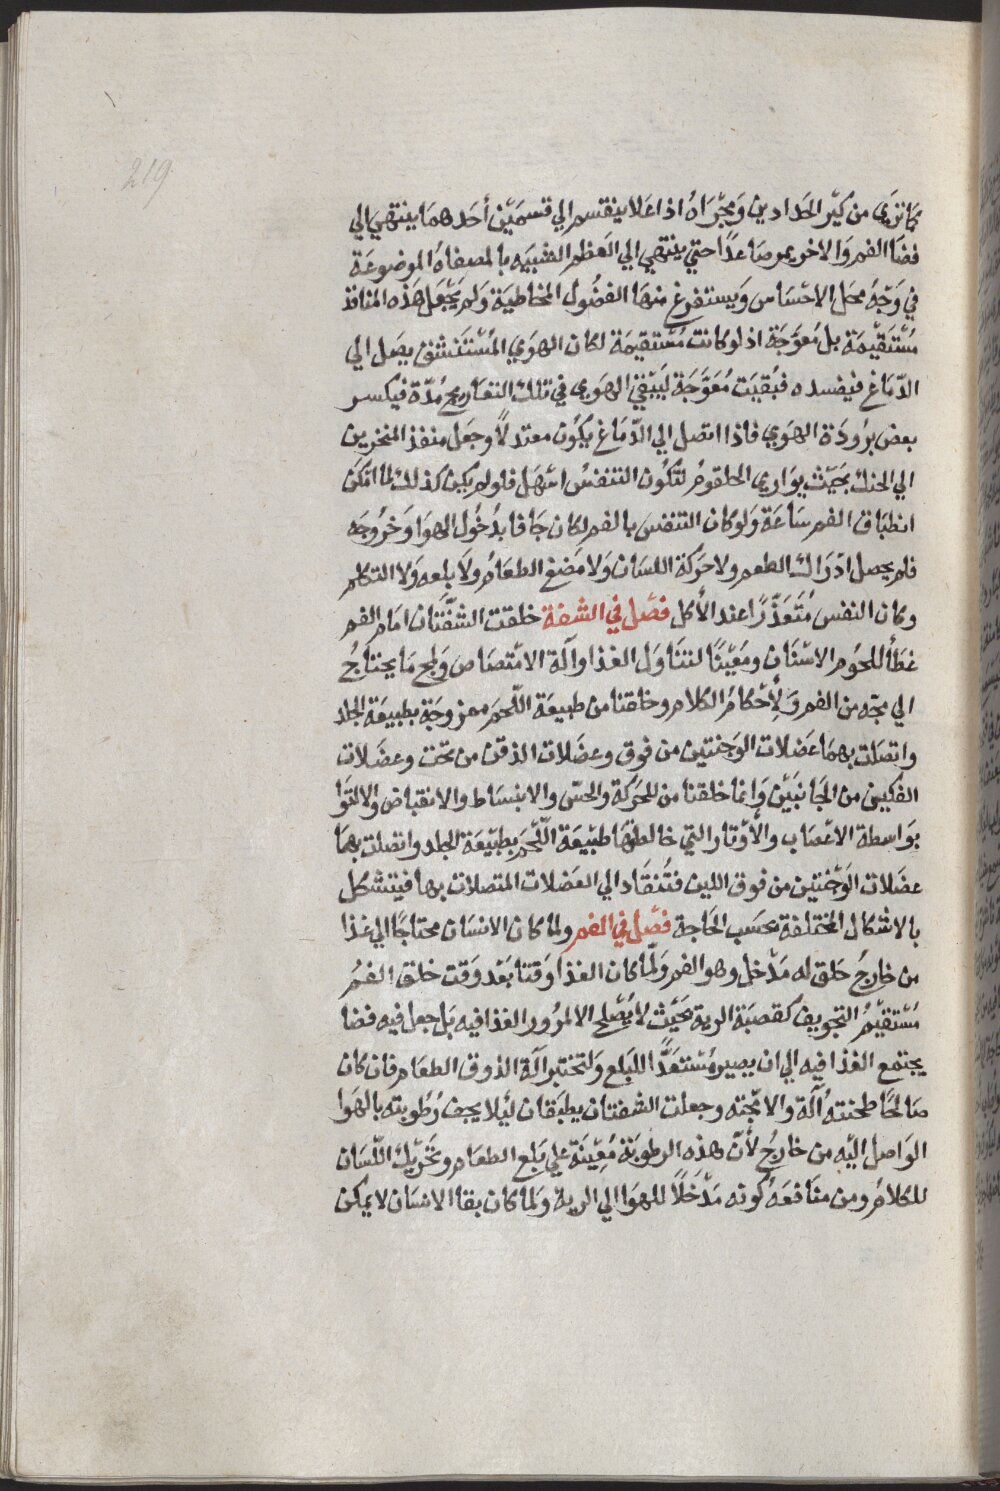 219
كما نري من كير الحدادين ومجراه اذا علا ينقسم الي قسمين أحدهما ينتهي الي
فضا الفم والاخر يمر صاعدًا حتي ينتهي الي العظم الشبيه بالمصفاه الموضوعة
في وجه محل الاحساس ويستفرغ منها الفضول المخاطية ولم يجعل هذه المنافذ
مستقيمة بل معوجة اذ لو كانت مستقيمة لكان الهوي المستنشق يصل الي
الدماغ فيفسده فبقيت معوجة ليبقي الهوي في تلك التعاريج مدّة فيكسر
بعض برودة الهوي فاذا اتصل الي الدماغ يكون معتدلاً وجعل منفذ المنخرين
الي الحنك بحيث يوازي الحلقوم لتكون التنفس اسهل فلو لم يكن كذلك لما امكن
انطباق الفم ساعة ولو كان التنفس بالفم لكان جافا بدخول الهوا وخروجه
فلم يحصل ادراك الطعم ولا حركة اللسان ولا مضغ الطعام ولا بلعه ولا التكلم
وكان النفس متعذّرًا عند الأكل فصل في الشفة خلقت الشفتان امام الفم
غطأ للحوم الاسنان ومعينًا لتناول الغذا وآلة الامتصاص ولمج ما يحتاج
الي مجه من الفم ولأحكام الكلام وخلقتا من طبيعة اللحم ممزوجة بطبيعة الجلد
واتصلت بهما عضلات الوجنتين من فوق وعضلات الذقن من تحت وعضلات
الفكين من الجانبين وانما خلقتا من للحركة والحس والانبساط والانقباض والالتوا
بواسطة الاعصاب والأوتار التي خالطتها طبيعة اللّحم بطبيعة الجلد واتصلت بهما
عضلات الوجنتين من فوق اللين فتنقاد الي العضلات المتصلات بها فيتشكل
بالاشكال المختلفة بحسب الحاجة فصل في الفم ولما كان الانسان محتاجًا الي غذا
من خارج خلق له مدخل وهو الفم ولمّا كان الغذا وقتا بعد وقت خلق الفم
مستقيم التجويف كقصبة الرية بحيث لا يصلح الا لمرور الغذا فيه بل جعل فيه فضا
يجتمع الغذا فيه الي ان يصير مستعدًّا للبلع ولتختبر آلة الذوق الطعام فان كان
صالحًا طحنته آلة والا مجته وجعلت الشفتان يطبقان ليلا يجف رطوبته بالهوا
الواصل اليه من خارج لأنّ هذه الرطوبة معينة علي بلع الطعام وتحريك اللّسان
للكلام ومن منافعه كونه مدخلاً للهوا الي الرية ولما كان بقا الانسان لا يمكن